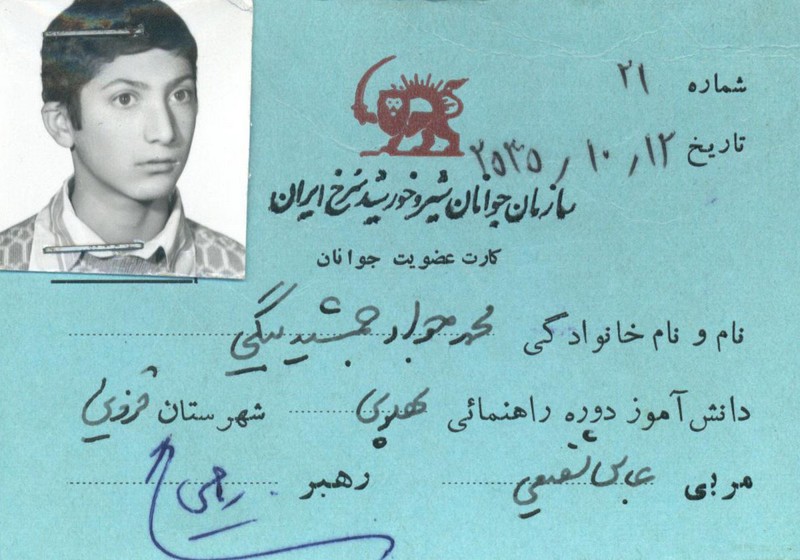 شماره ۲۱
تاریخ ۲۵۳۵/۱۰/۱۲
سازمان جوانان شیر و خورشید سرخ ایران
کارت عضویت جوانان
نام و نام خانوادگی محمد جواد جمشید بیگی
دانش آموز دوره راهنمائی شهرستان قزوین
مربی عباس شفیعی رهبر